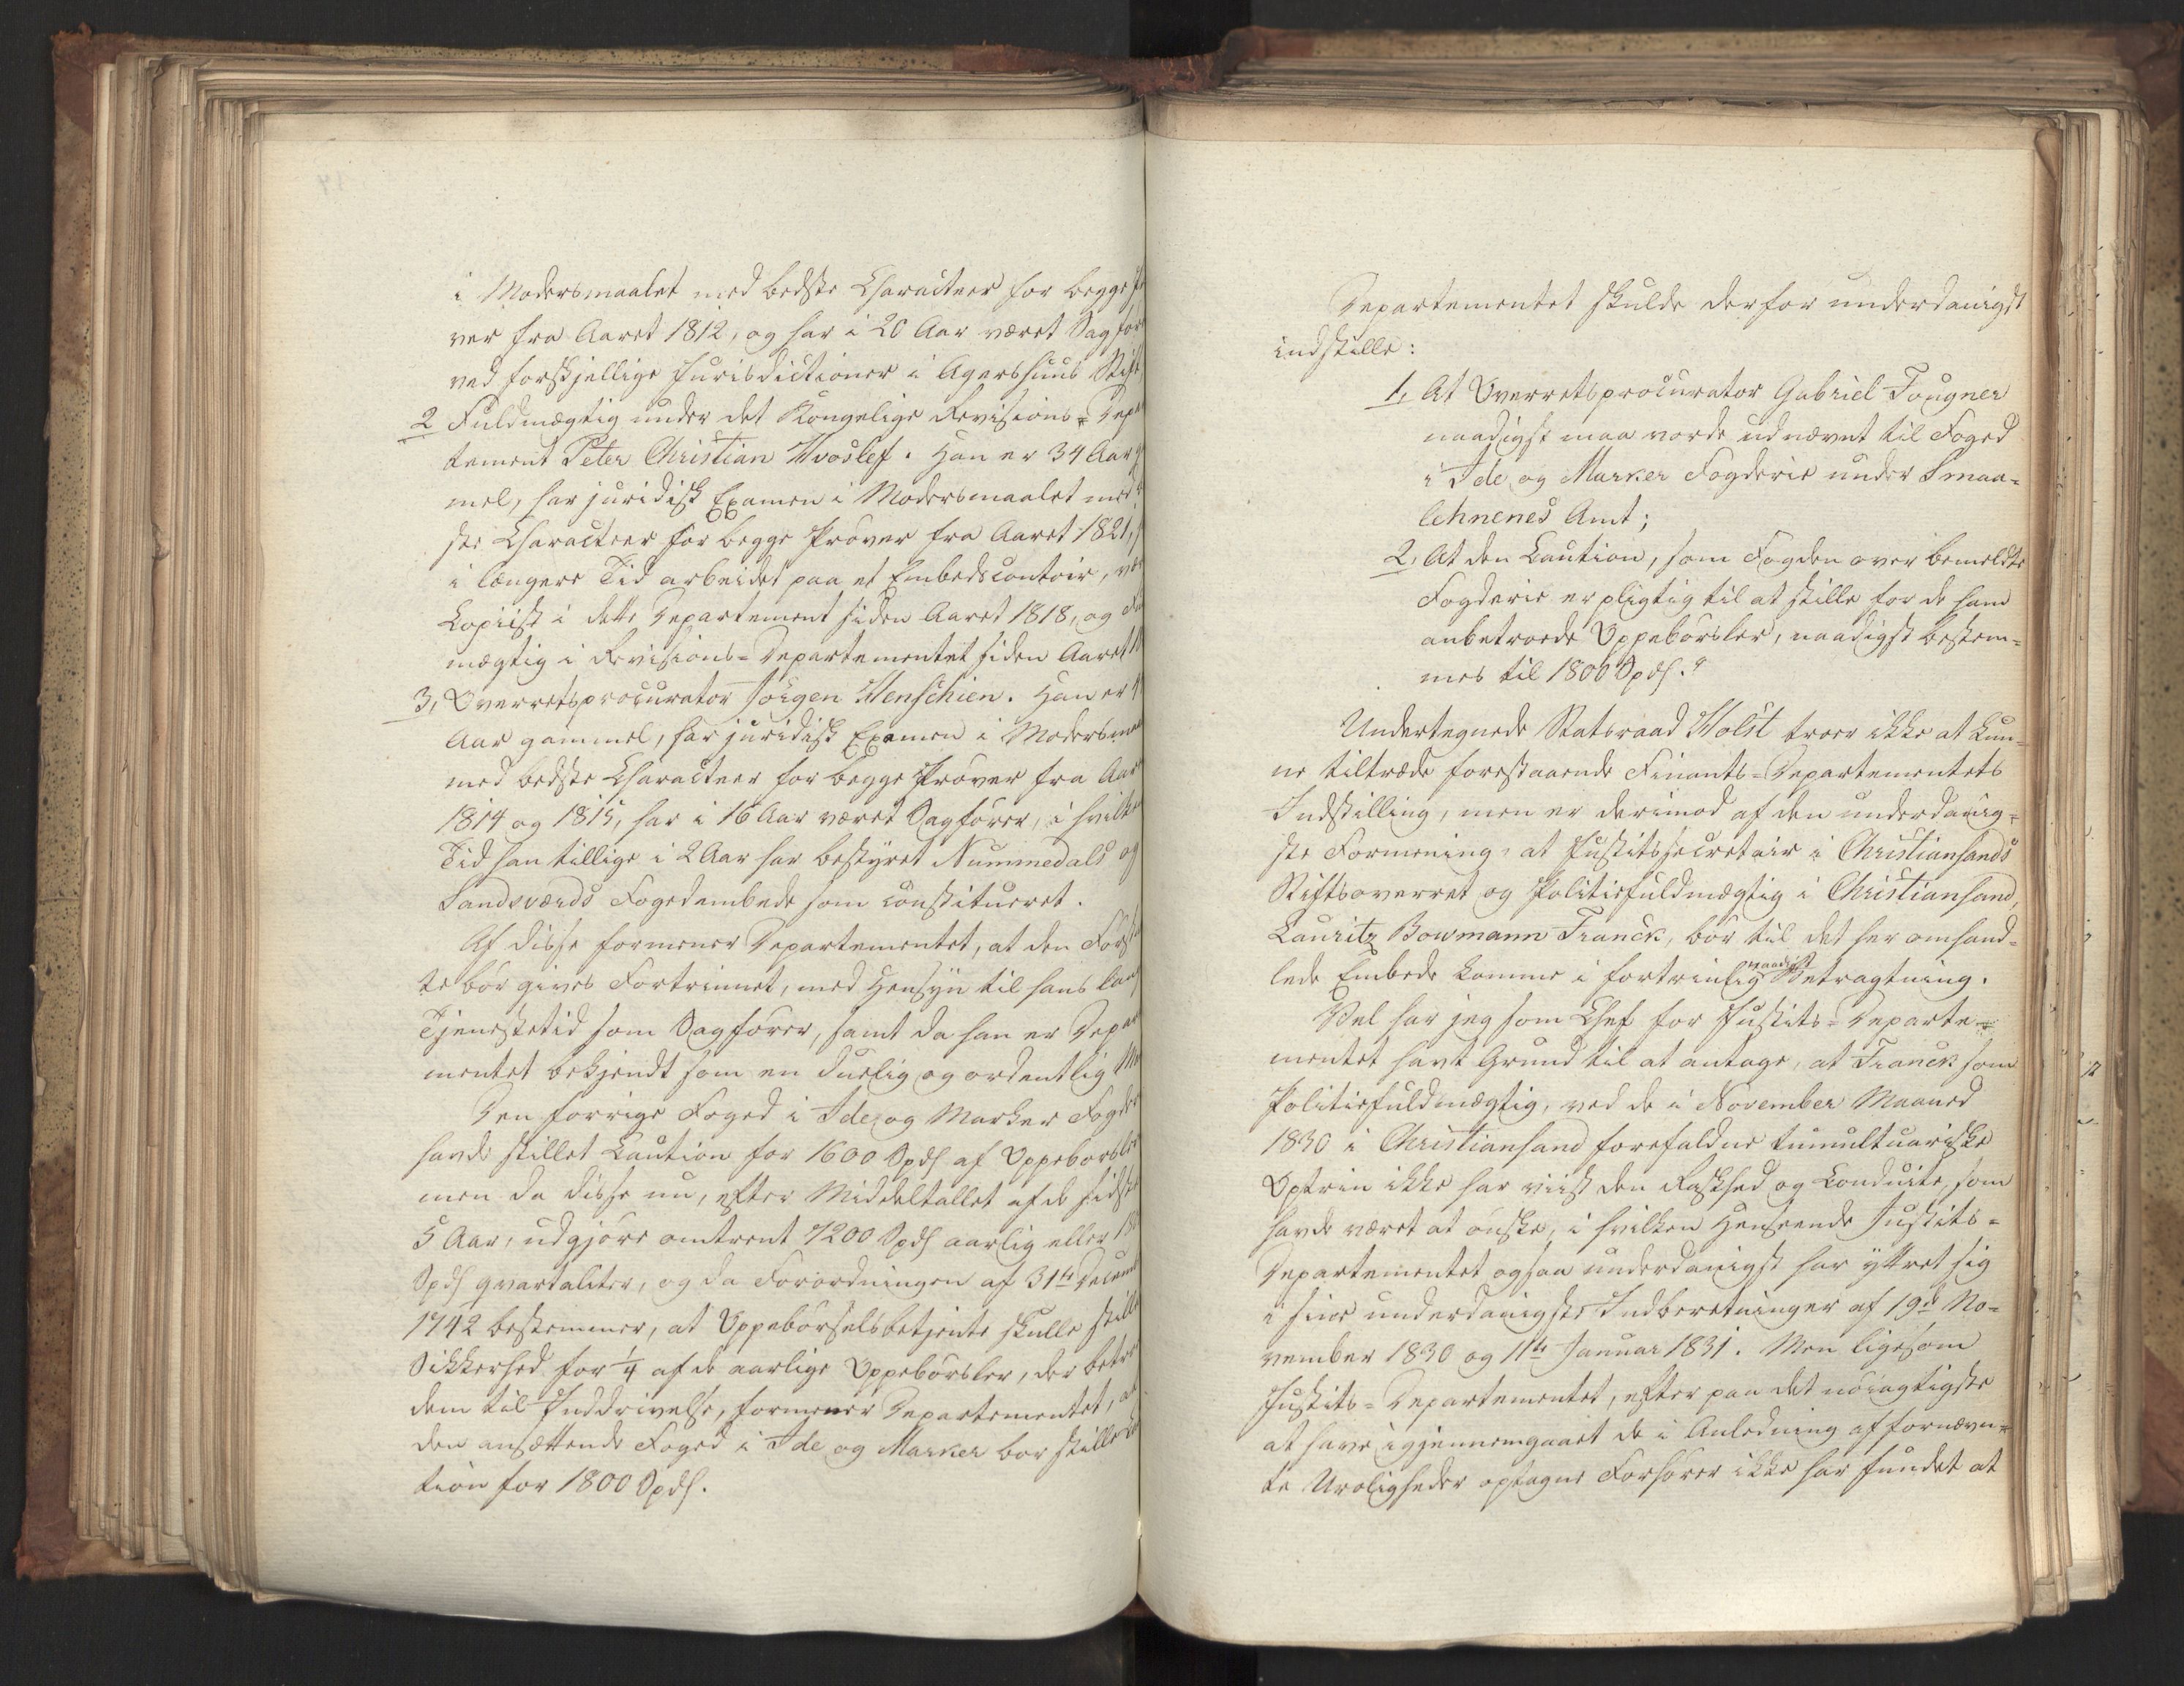 i Modersmaalet med bedste Characteer for begge
ver fra Aaret 1812, og har i 20 Aar været Sagfør
ved forskjellige Jurisdictioner i Agershuus Stift,
2 Fuldmægtig under det Kongelige Revisions-Depar
tement Peter Christian Hvoslef. Han er 34 Aar
mel, har juridisk Examen i Modersmaalet med
ste Characteer for begge Prøver fra Aaret 1821,
i længere Tid arbeidet paa et Embedscontoir,
Copiist i dette Departement siden Aaret 1818, og
mægtig i Revisions-Departementet siden Aaret
3, Overretsprocurator Jørgen Henschien. Han er
Aar gammel, har juridisk Examen i Modersmaa
med bedste Characteer for begge Prøver fra Aar
1814 og 1815, har i 16 Aar været Sagfører, i hvilke
Tid han tillige i 2 Aar har bestyret Nummedals og
Sandsværds Fogedembede som constitueret.
Af disse formener Departementet, at den Først
te bør gives Fortrinnet, med Hensyn til hans lang
Tjenestetid som Sagfører, samt da han er Depar
mentet bekjendt som en duelig og ordentlig
Den forrige Foged i Ide og Marker Fogder
havde stillet Caution for 1600 Spds af Oppebørsler
men da disse nu, efter Middeltallet af de sidste
5 Aar, udgjøre omtrent 7200 Spds aarlig eller 18
Spds qvartaliter, og da Forordningen af 31te Decemb
1742 bestemmer, at Oppebørselsbetjente skulle stille
Sikkerhed for 1/4 af de aarlige Oppebørsler, der betro
dem til Inddrivelse, formener Departementet, at
den ansættende Foged i Ide og Marker bør stille Cau
tion for 1800 Spds.
Departementet skulde derfor underdanigst
indstille:
1, At Overretsprocurator Gabriel Tougner
naadigst maa vorde udnævnt til Foged
i Ide og Marker Fogderie under Smaa-
lehnenes Amt;
2, At den Caution, som Fogden over bemeldte
Fogderie er pligtig til at stille for de ham
anbetroede Oppebørsler, naadigst bestem-
mes til 1800 Spds."
Undertegnede Statsraad Holst troer ikke at kun-
ne tiltræde forestaaende Finants-Departementets
Indstilling, men er derimod af den underdanig-
ste Formening, at Justitssecretair i Christiansands
Stiftsoverret og Politiefuldmægtig i Christiansand,
Lauritz Bowmann Franck, bør til det her omhand-
lede Embede komme i fortrinlig naadigst Betragtning.
Vel har jeg som Chef for Justits-Departe-
mentet havt Grund til at antage, at Franck som
Politiefuldmægtig, ved de i November Maaned
1830 i Christiansand forefaldne tumultuariske
Optrin ikke har viist den Raskhed og Conduite, som
havde været at ønske, i hvilken Henseende Justits-
Departementet ogsaa underdanigst har yttret sig
i sine underdanigste Indberetninger af 19de No-
vember 1830 og 11te Januar 1831. Men ligesom
Justits-Departementet, efter paa det nøiagtigste
at have igjennemgaaet de i Anledning af fornævn-
te Uroligheder optagne Forhører ikke har fundet at